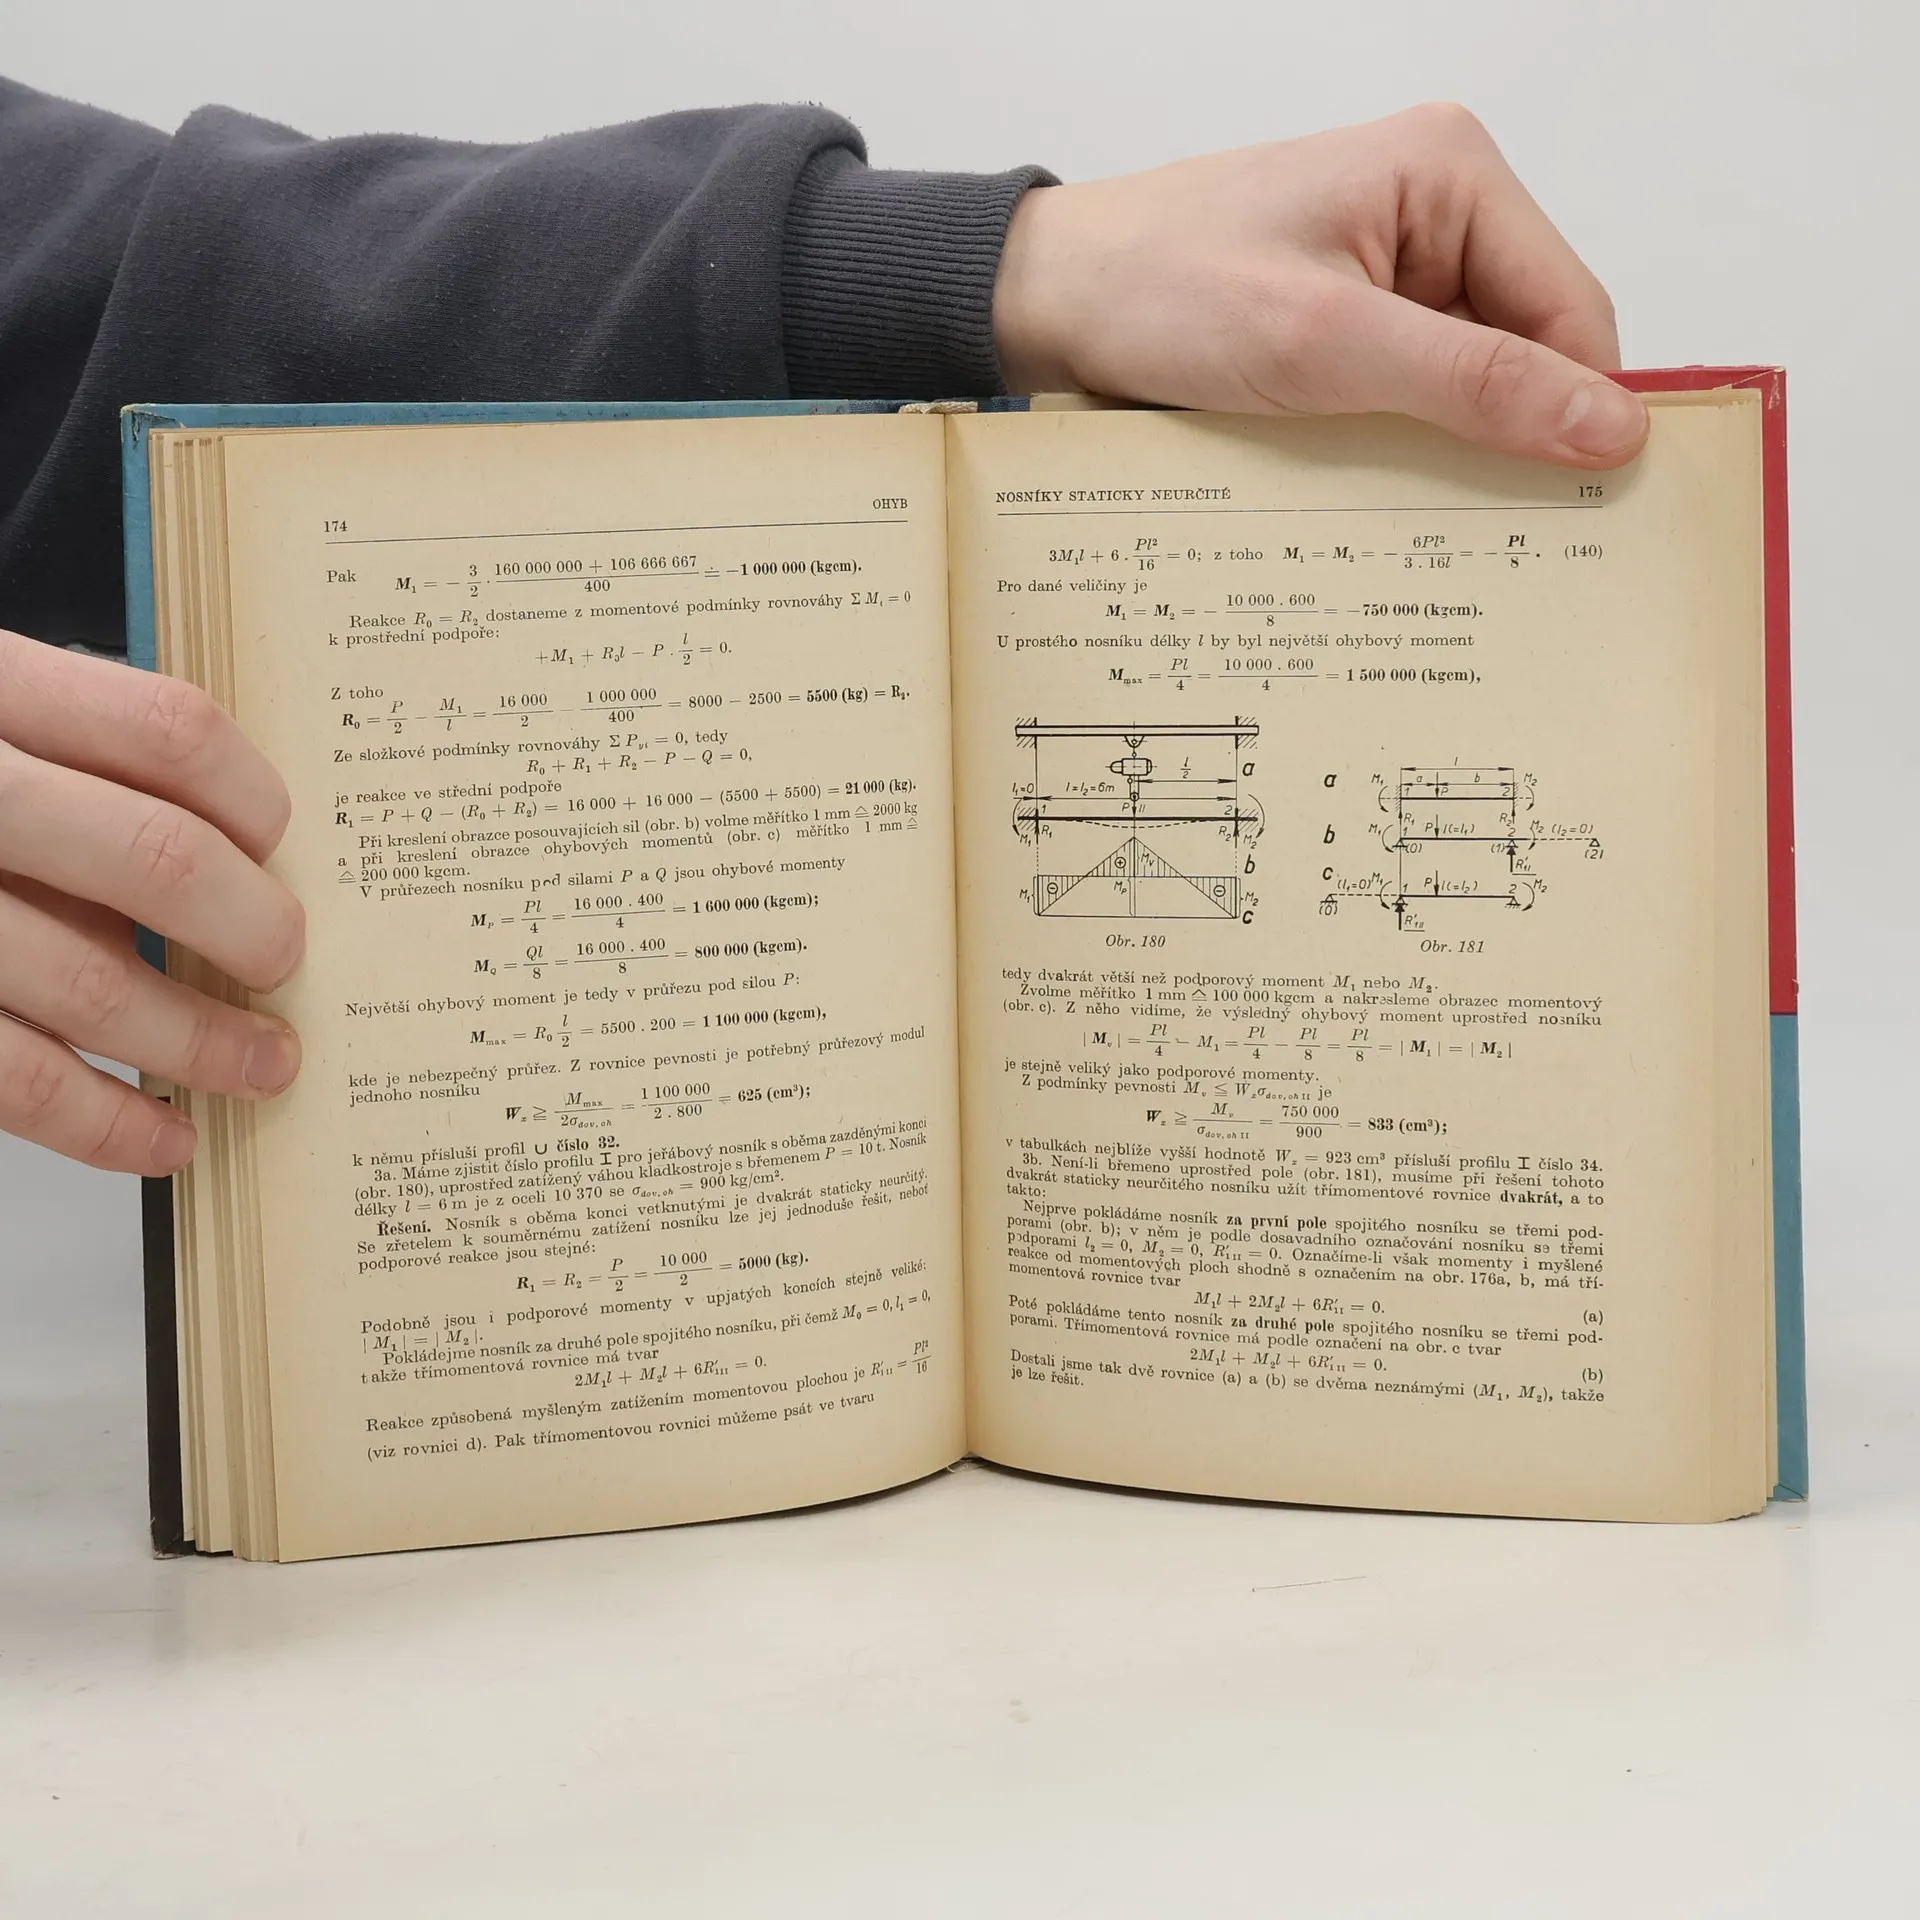 174
OHYB
Pak M₁ = − 3/2 · (160 000 000 + 106 666 667)/400 ≐ −1 000 000 (kgcm).
Reakce R₀ = R₂ dostaneme z momentové podmínky rovnováhy Σ Mᵢ = 0
k prostřední podpoře:
+M₁ + R₀l − P · l/2 = 0.
Z toho
R₀ = P/2 − M₁/l = 16 000/2 − 1 000 000/400 = 8000 − 2500 = 5500 (kg) = R₂.
Ze složkové podmínky rovnováhy Σ P_yi = 0, tedy
R₀ + R₁ + R₂ − P − Q = 0,
je reakce ve střední podpoře
R₁ = P + Q − (R₀ + R₂) = 16 000 + 16 000 − (5500 + 5500) = 21 000 (kg).
Při kreslení obrazce posouvajících sil (obr. b) volme měřítko 1 mm ≙ 2000 kg
a při kreslení obrazce ohybových momentů (obr. c) měřítko 1 mm ≙
≙ 200 000 kgcm.
V průřezech nosníku pod silami P a Q jsou ohybové momenty
M_P = Pl/4 = 16 000 . 400/4 = 1 600 000 (kgcm);
M_Q = Ql/8 = 16 000 . 400/8 = 800 000 (kgcm).
Největší ohybový moment je tedy v průřezu pod silou P:
M_max = R₀ l/2 = 5500 . 200 = 1 100 000 (kgcm),
kde je nebezpečný průřez. Z rovnice pevnosti je potřebný průřezový modul
jednoho nosníku
W_x ≧ M_max/2σ_dov, oh = 1 100 000/2 . 800 = 625 (cm³);
k němu přísluší profil U číslo 32.
3a. Máme zjistit číslo profilu I pro jeřábový nosník s oběma zazděnými konci
(obr. 180), uprostřed zatížený váhou kladkostroje s břemenem P = 10 t. Nosník
délky l = 6 m je z oceli 10 370 se σ_dov, oh = 900 kg/cm².
Řešení. Nosník s oběma konci vetknutými je dvakrát staticky neurčitý.
Se zřetelem k souměrnému zatížení nosníku lze jej jednoduše řešit, neboť
podporové reakce jsou stejné:
R₁ = R₂ = P/2 = 10 000/2 = 5000 (kg).
Podobně jsou i podporové momenty v upjatých koncích stejně veliké:
| M₁ | = | M₂ |.
Pokládejme nosník za druhé pole spojitého nosníku, při čemž M₀ = 0, l₁ = 0,
takže třímomentová rovnice má tvar
2M₁l + M₂l + 6R′₁II = 0.
Reakce způsobená myšleným zatížením momentovou plochou je R′₁II = Pl²/16
(viz rovnici d). Pak třímomentovou rovnici můžeme psát ve tvaru
NOSNÍKY STATICKY NEURČITÉ
175
3M₁l + 6 . Pl²/16 = 0; z toho M₁ = M₂ = − 6Pl²/3 . 16l = − Pl/8 . (140)
Pro dané veličiny je
M₁ = M₂ = − 10 000 . 600/8 = −750 000 (kgcm).
U prostého nosníku délky l by byl největší ohybový moment
M_max = Pl/4 = 10 000 . 600/4 = 1 500 000 (kgcm),
l/2
a
l₁=0
l=l₂=6m
P
II
1
2
M₁
R₁
R₂
M₂
b
M_v
M_P
M₁
M₂
c
Obr. 180
a
l
M₁
a
b
M₂
1
P
2
R₁
R₂
b
M₁
1
P
l(=l₁)
2
M₂
(l₂=0)
(0)
(1)
(2)
R′₁I
c
(l₁=0)
M₁
1
P
l(=l₂)
2
M₂
(0)
R′₁II
Obr. 181
tedy dvakrát větší než podporový moment M₁ nebo M₂.
Zvolme měřítko 1 mm ≙ 100 000 kgcm a nakresleme obrazec momentový
(obr. c). Z něho vidíme, že výsledný ohybový moment uprostřed nosníku
| M_v | = Pl/4 − M₁ = Pl/4 − Pl/8 = Pl/8 = | M₁ | = | M₂ |
je stejně veliký jako podporové momenty.
Z podmínky pevnosti M_v ≦ W_xσ_dov, oh II je
W_x ≧ M_v/σ_dov, oh II = 750 000/900 = 833 (cm³);
v tabulkách nejblíže vyšší hodnotě W_x = 923 cm³ přísluší profilu I číslo 34.
3b. Není-li břemeno uprostřed pole (obr. 181), musíme při řešení tohoto
dvakrát staticky neurčitého nosníku užít třímomentové rovnice dvakrát, a to
takto:
Nejprve pokládáme nosník za první pole spojitého nosníku se třemi pod-
porami (obr. b); v něm je podle dosavadního označování nosníku se třemi
podporami l₂ = 0, M₂ = 0, R′₁II = 0. Označíme-li však momenty i myšlené
reakce od momentových ploch shodně s označením na obr. 176a, b, má tří-
momentová rovnice tvar
M₁l + 2M₂l + 6R′₁I = 0. (a)
Poté pokládáme tento nosník za druhé pole spojitého nosníku se třemi pod-
porami. Třímomentová rovnice má podle označení na obr. c tvar
2M₁l + M₂l + 6R′₁II = 0. (b)
Dostali jsme tak dvě rovnice (a) a (b) se dvěma neznámými (M₁, M₂), takže
je lze řešit.